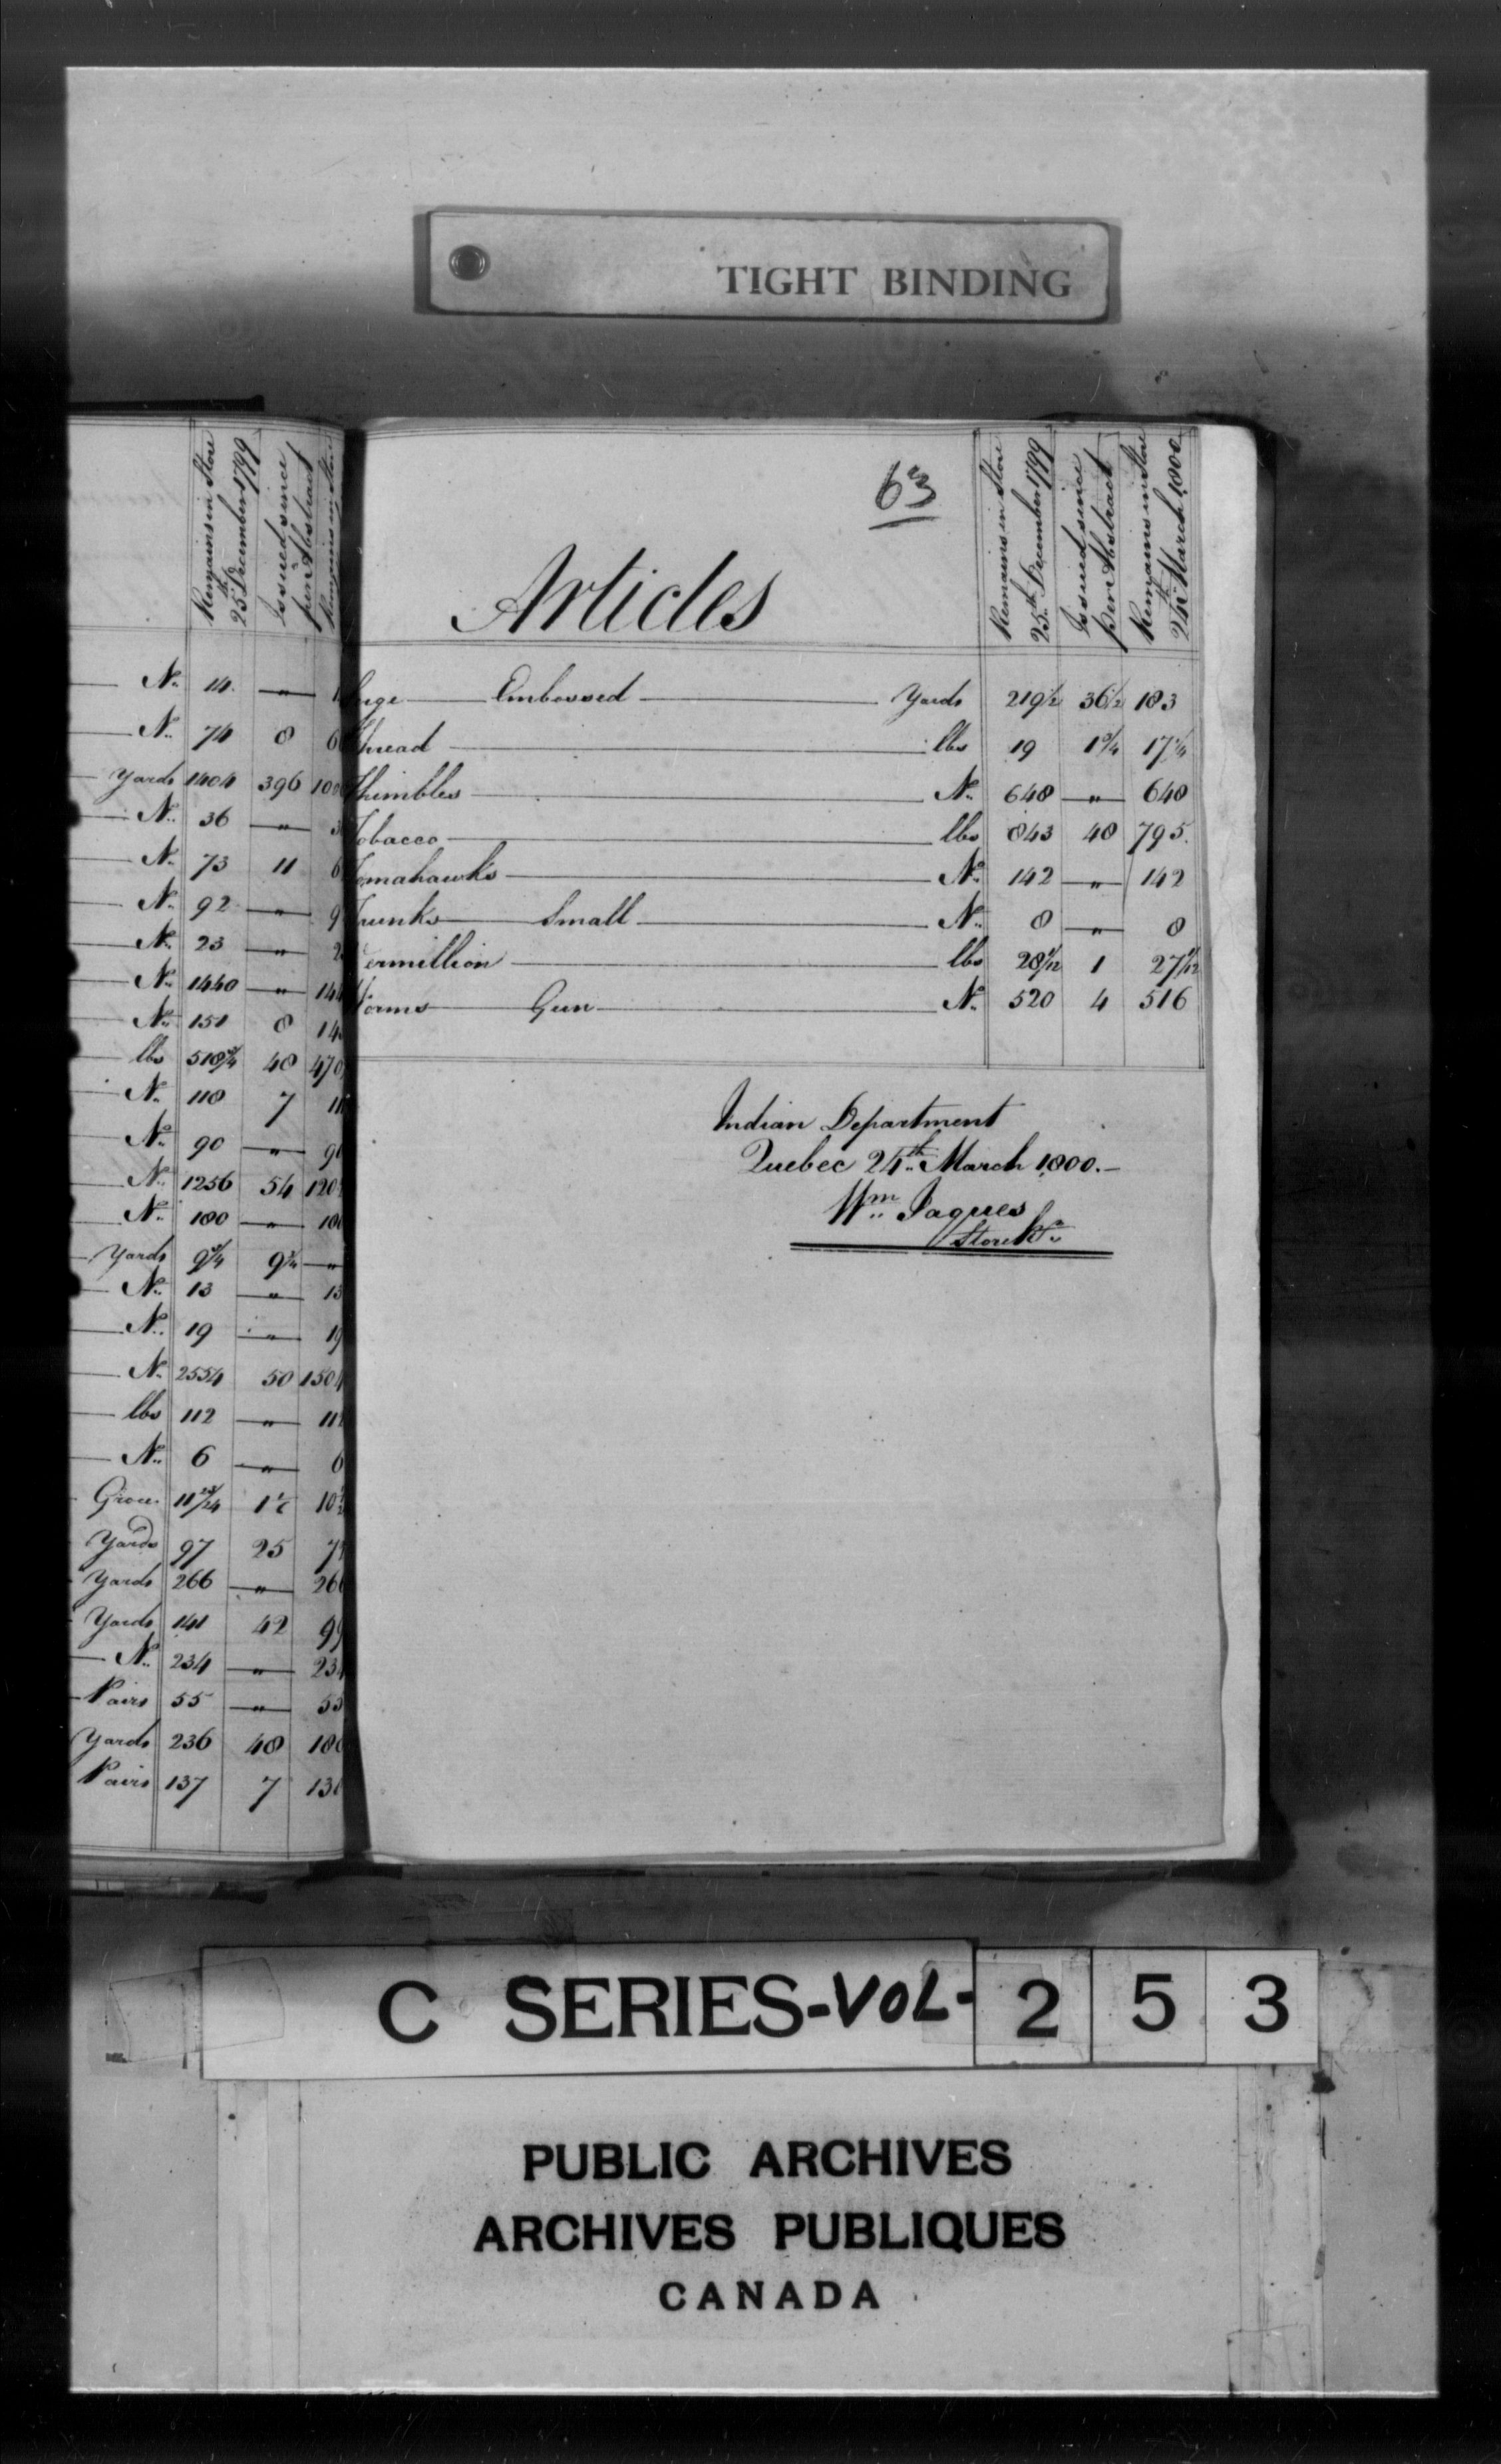 Remains in Store
25th December 1799
Issued since
per Abstract
Remains in Store
N.. 14 — " —
N.. 74 8 6
Yards 1404 396 100
N.. 36 — " — 3
N.. 73 11 6
N.. 92 — " — 9
N.. 23 — " — 2
N.. 1440 — " — 144
N.. 151 8 14
lbs 518¾ 48 470
N.. 118 7 11
N.. 90 — " — 90
N.. 1256 54 120
N.. 180 — " — 18
Yards 9¾ 9¾ — " —
N.. 13 — " — 13
N.. 19 — " — 19
N.. 2554 50 1504
lbs 112 — " — 112
N.. 6 — " — 6
Groce 11 23/24 1½ 10
Yards 97 25 7
Yards 266 — " — 266
Yards 141 42 99
N.. 234 — " — 234
Pairs 55 — " — 55
Yards 236 48 18
Pairs 137 7 13
TIGHT BINDING
63
Articles
Remains in Store
25th December 1799
Issued since
per Abstract
Remains in Store
24th March 1800
Embossed Yards 219½ 36½ 183
Thread lbs 19 1¾ 17¼
Thimbles N.. 648 — " — 648
Tobacco lbs 843 48 795
Tomahawks N.. 142 — " — 142
Trunks Small N.. 8 — " — 8
Vermillion lbs 28 1/12 1 27 1/12
Worms Gun N.. 520 4 516
Indian Department
Quebec 24th March 1800.—
Wm.. Jaques
StoreKr..
C SERIES-VOL- 2 5 3
PUBLIC ARCHIVES
ARCHIVES PUBLIQUES
CANADA